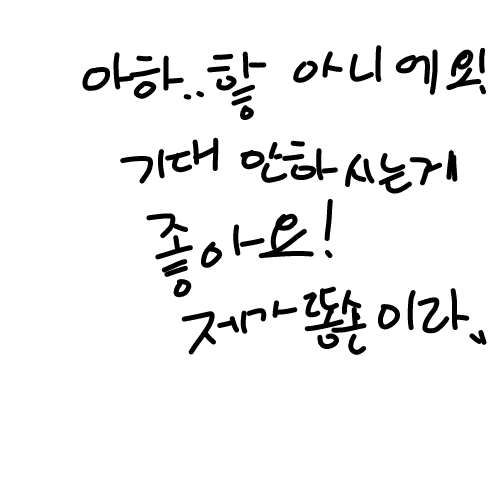 아하..핳 아니에요!
기대 안하시는게
좋아요!
제가 똥손이라..